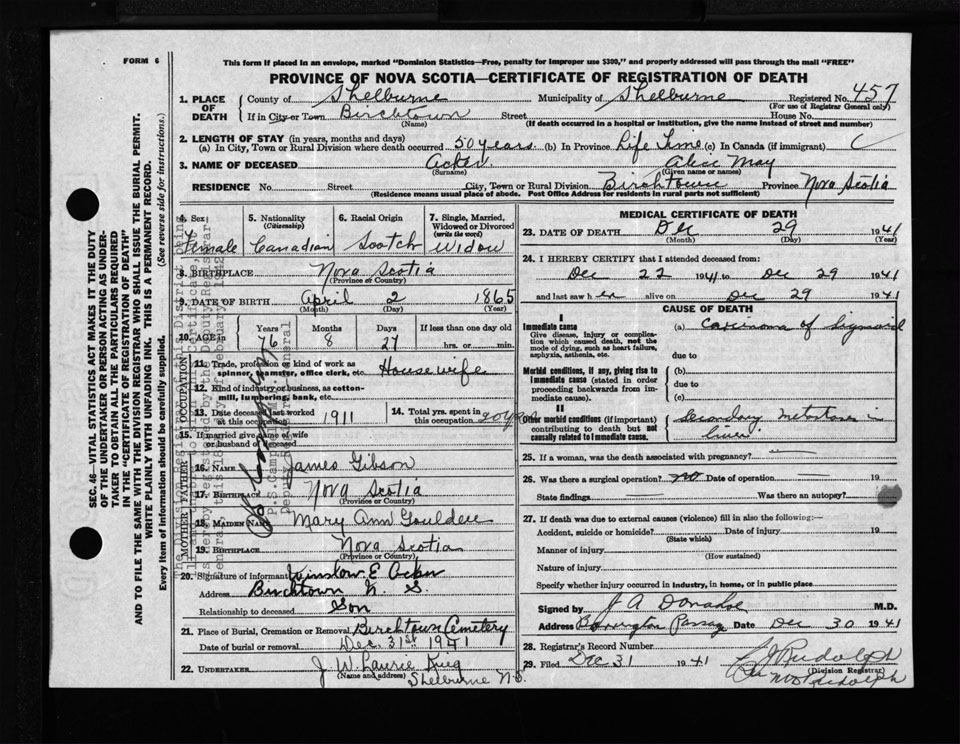 FORM 6
This form if placed in an envelope, marked "Dominion Statistics—Free, penalty for improper use $300," and properly addressed will pass through the mail "FREE"
PROVINCE OF NOVA SCOTIA—CERTIFICATE OF REGISTRATION OF DEATH
SEC. 46—VITAL STATISTICS ACT MAKES IT THE DUTY
OF THE UNDERTAKER OR PERSON ACTING AS UNDER-
TAKER TO OBTAIN ALL THE PARTICULARS REQUIRED
IN THE "CERTIFICATE OF REGISTRATION OF DEATH"
AND TO FILE THE SAME WITH THE DIVISION REGISTRAR WHO SHALL ISSUE THE BURIAL PERMIT.
WRITE PLAINLY WITH UNFADING INK. THIS IS A PERMANENT RECORD.
Every item of information should be carefully supplied. (See reverse side for instructions.)
1. PLACE OF DEATH County of Shelburne Municipality of Shelburne Registered No. 457
(For use of Registrar General only)
If in City or Town Birchtown Street House No.
(Name) (If death occurred in a hospital or Institution, give the name instead of street and number)
2. LENGTH OF STAY (in years, months and days)
(a) In City, Town or Rural Division where death occurred 50 years (b) In Province Life Time (c) In Canada (if immigrant)
3. NAME OF DECEASED Acker Alice May
(Surname) (Given name or names)
RESIDENCE No. Street City, Town or Rural Division Birchtown Province Nova Scotia
(Residence means usual place of abode. Post Office Address for residents in rural parts not sufficient)
4. Sex 5. Nationality (Citizenship) 6. Racial Origin 7. Single, Married, Widowed or Divorced (write the word)
Female Canadian Scotch Widow
8. BIRTHPLACE Nova Scotia
(Province or Country)
9. DATE OF BIRTH April 2 1865
(Month) (Day) (Year)
10. AGE in Years Months Days If less than one day old
76 8 27 hrs. or min.
OCCUPATION
11. Trade, profession or kind of work as spinner, teamster, office clerk, etc. Housewife
12. Kind of industry or business, as cotton-mill, lumbering, bank, etc.
13. Date deceased last worked at this occupation 1911 14. Total yrs. spent in this occupation
15. If married give name of wife or husband of deceased
FATHER
16. NAME James Gibson
17. BIRTHPLACE Nova Scotia
(Province or Country)
MOTHER
18. MAIDEN NAME Mary Ann
19. BIRTHPLACE Nova Scotia
(Province or Country)
20. Signature of informant Winslow E. Acker
Address Birchtown N. S.
Relationship to deceased Son
21. Place of Burial, Cremation or Removal Birchtown Cemetery
Date of burial or removal Dec. 31st 1941
22. UNDERTAKER J. W. Laurie
(Name and address) Shelburne N.S.
MEDICAL CERTIFICATE OF DEATH
23. DATE OF DEATH Dec 29 1941
(Month) (Day) (Year)
24. I HEREBY CERTIFY that I attended deceased from:
Dec 22 1941 to Dec 29 1941
and last saw her alive on Dec 29 1941
CAUSE OF DEATH
I
Immediate cause (a) Carcinoma of Sigmoid
Give disease, injury or complication which caused death, not the mode of dying, such as heart failure, asphyxia, asthenia, etc.
due to
Morbid conditions, if any, giving rise to Immediate cause (stated in order proceeding backwards from immediate cause).
(b)
due to
(c)
II
Other morbid conditions (if important) contributing to death but not causally related to Immediate cause.
Secondary metastases in liver
25. If a woman, was the death associated with pregnancy?
26. Was there a surgical operation? no Date of operation 19
State findings Was there an autopsy?
27. If death was due to external causes (violence) fill in also the following:—
Accident, suicide or homicide? Date of injury 19
(State which)
Manner of injury
(How sustained)
Nature of injury
Specify whether injury occurred in industry, in home, or in public place
Signed by J A Donahoe M.D.
Address Barrington Passage Date Dec 30 1941
28. Registrar's Record Number
29. Filed Dec 31 1941 Rudolph
(Division Registrar)